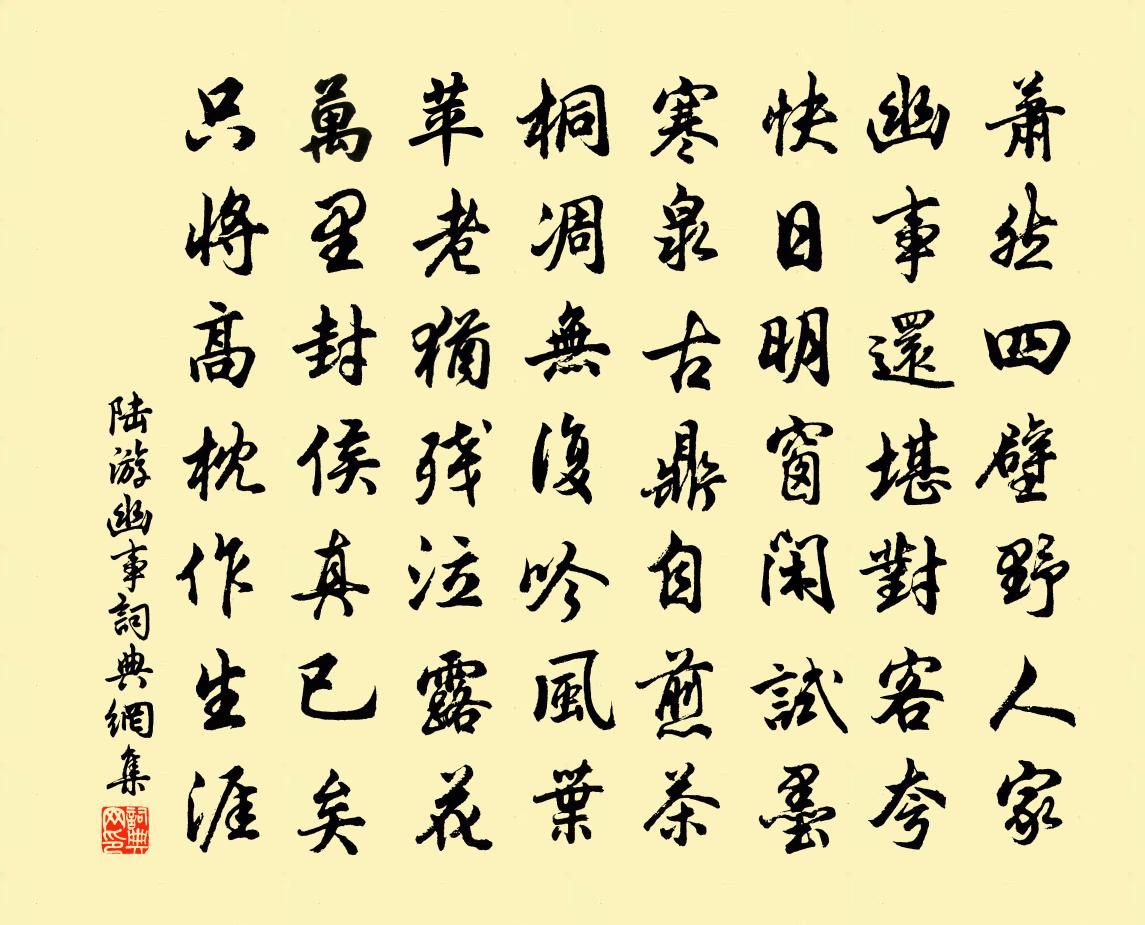 蕭然四壁野人家
幽事還堪對客夸
快日明窗閑試墨
寒泉古鼎自煎茶
桐凋無復吟風葉
苹老猶殘泣露花
萬里封侯真已矣
只將高枕作生涯
陸游幽事詞典網集
詞典网印